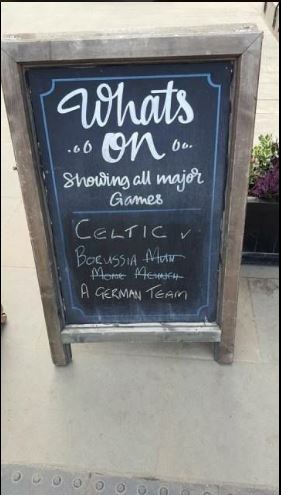 Whats
on
Showing all major
Games
CELTIC v
BORUSSIA MUN
MOME MCUNCH
A GERMAN TEAM